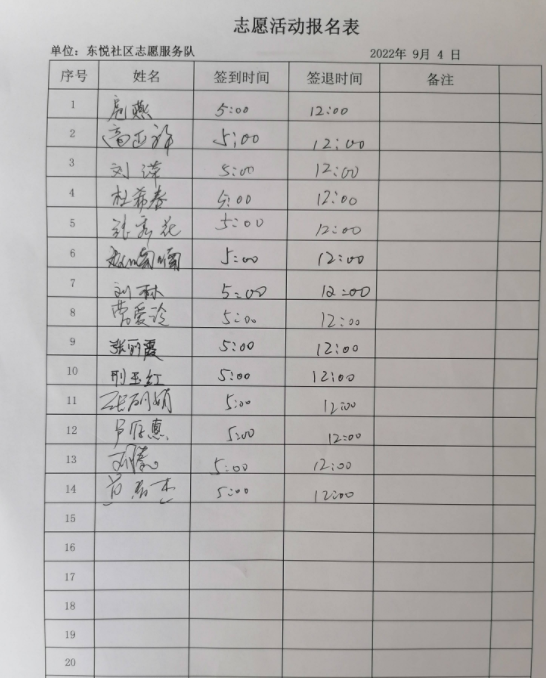 志愿活动报名表
单位：东悦社区志愿服务队 2022年 9月 4 日
序号 姓名 签到时间 签退时间 备注
1 5:00 12:00
2 5:00 12:00
3 刘 5:00 12:00
4 杜希春 5:00 12:00
5 5:00 12:00
6 5:00 12:00
7 刘林 5:00 12:00
8 曹爱玲 5:00 12:00
9 张丽霞 5:00 12:00
10 荆玉红 5:00 12:00
11 5:00 12:00
12 5:00 12:00
13 5:00 12:00
14 5:00 12:00
15
16
17
18
19
20